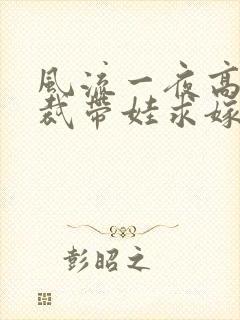 风流一夜高
裁带娃求嫁
彭昭之